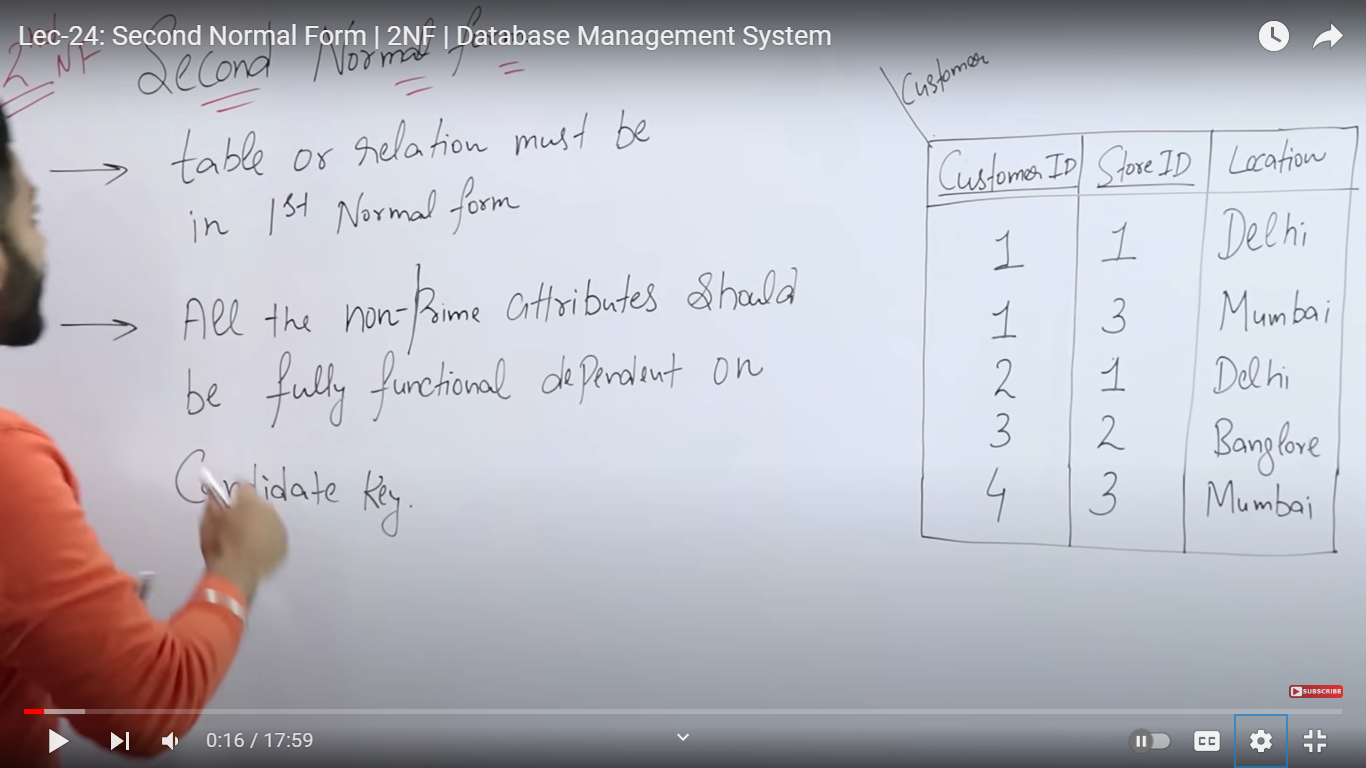 Lec-24: Second Normal Form | 2NF | Database Management System
2nd NF
Second Normal form
table or relation must be
in 1st Normal form
All the non-Prime attributes Should
be fully functional dependent on
Candidate Key.
Customer
Customer ID Store ID Location
1 1 Delhi
1 3 Mumbai
2 1 Delhi
3 2 Banglore
4 3 Mumbai
SUBSCRIBE
0:16 / 17:59
CC